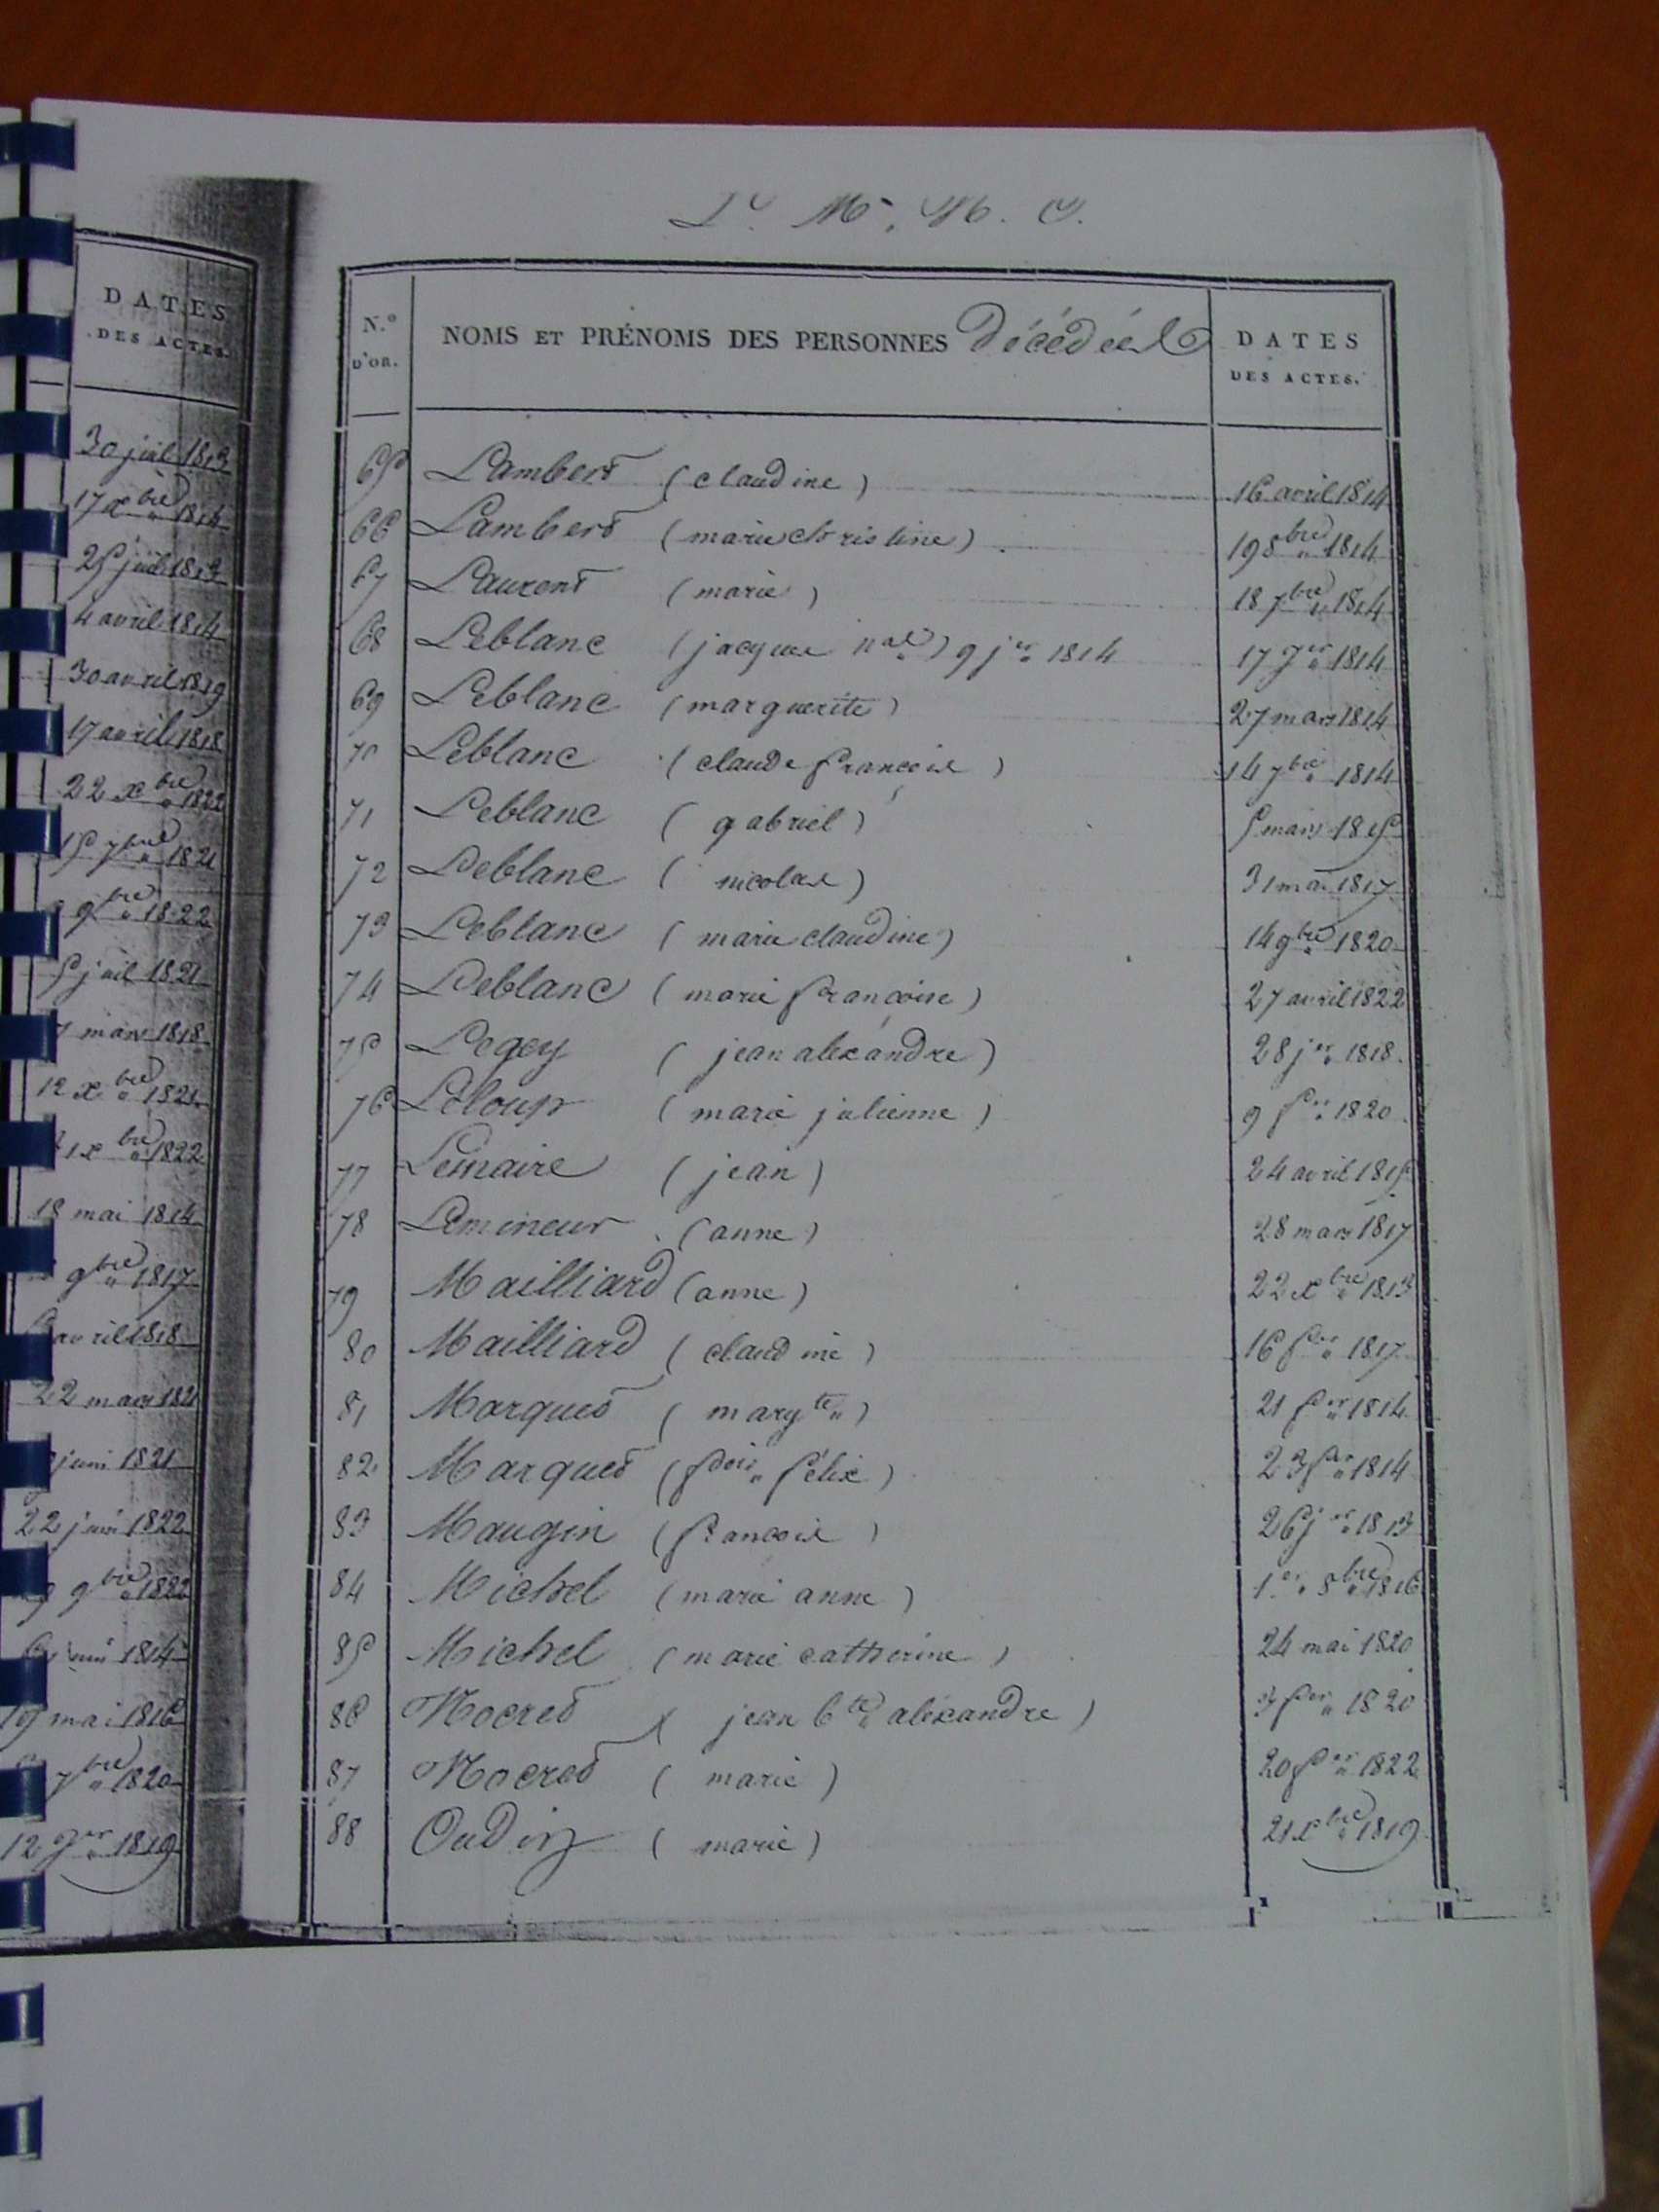 L. M. N. O.
DATES
DES ACTES.
30 juil 1813
17 xbre 1814
25 juil 1813
4 avril 1814
30 avril 1819
17 avril 1818
22 xbre 1822
15 7bre 1821
9bre 1822
5 juil 1821
7 mars 1818
12 xbre 1821
1 xbre 1822
18 mai 1814
9bre 1817
avril 1818
22 mars 1821
juin 1821
22 juin 1822
9 9bre 1822
1814
19 mai 1816
7bre 1820
12 Jer 1819
N.º D'OR. NOMS ET PRÉNOMS DES PERSONNES décédées DATES DES ACTES.
65 Lambert (claudine) 16 avril 1814
66 Lambert (marie christine) 19 8bre 1814
67 Laurent (marie) 18 7bre 1814
68 Leblanc (jacque nal) 9 jer 1814 17 Jer 1814
69 Leblanc (marguerite) 27 mars 1814
70 Leblanc (claude françois) 14 7bre 1814
71 Leblanc (gabriel) 5 mars 1815
72 Leblanc (nicolas) 31 mai 1817
73 Leblanc (marie claudine) 14 9bre 1820
74 Leblanc (marie françoise) 27 avril 1822
75 Legey (jean alexandre) 28 jer 1818.
76 Leloup (marie julienne) 9 fer 1820
77 Lemaire (jean) 24 avril 1815
78 Lemineur (anne) 28 mars 1817
79 Mailliard (anne) 22 xbre 1813
80 Mailliard (claudine) 16 fer 1817
81 Marquet (margte) 21 fer 1814
82 Marquet (fçois félix) 23 fer 1814
83 Maugin (francois) 26 jer 1813
84 Michel (marie anne) 1.er 8bre 1816
85 Michel (marie catherine) 24 mai 1820
86 Nocret (jean bte alexandre) 3 fer 1820
87 Nocret (marie) 20 fer 1822
88 Oudin (marie) 21 xbre 1819